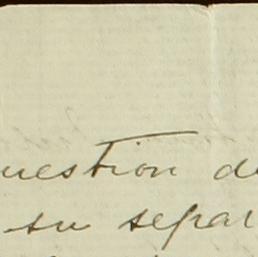 uestion de
su separ